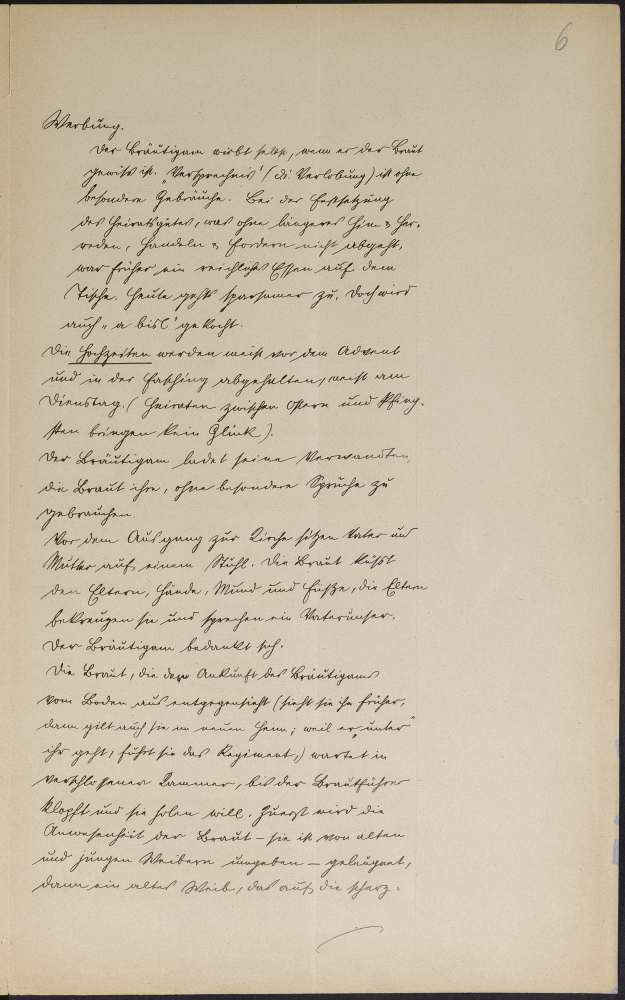 6
Werbung.
Der Bräutigam wirbt selbst, wenn er der Braut
gewiß ist. "Versprechnis" (die Verlobung) ist ohne
besondere Gebräuche. Bei der Festsetzung
des Heiratsgutes, was ohne längeres Hin- & Her-
reden, Handeln & Fordern nicht abgeht,
war früher ein reichliches Essen auf dem
Tische. Heute gehts sparsamer zu. Doch wird
auch "a bisl" gekocht.
Die Hochzeiten werden meist vor dem Advent
und in der Fasching abgehalten, meist am
Dienstag. (Heiraten zwischen Ostern und Pfing-
sten bringen kein Glück).
Der Bräutigam ladet seine Verwandten,
die Braut ihre, ohne besondere Sprüche zu
gebrauchen.
Vor dem Ausgang zur Kirche sitzen Vater und
Mutter auf einem Stuhl. Die Braut küßt
den Eltern, Hände, Mund und Füße, die Eltern
bekreuzen sie und sprechen ein Vaterunser.
Der Bräutigam bedankt sich.
Die Braut, die der Ankunft des Bräutigams
vom Boden aus entgegensieht (sieht sie ihn früher,
dann gilt auch sie im neuen Heim; weil er "unter"
ihr geht, führt sie das Regiment,) wartet in
verschlossener Kammer, bis der Brautführer
klopft und sie holen will. Zuerst wird die
Anwesenheit der Braut – sie ist von alten
und jungen Weibern umgeben – geleugnet,
dann ein altes Weib, das auf die scherz-